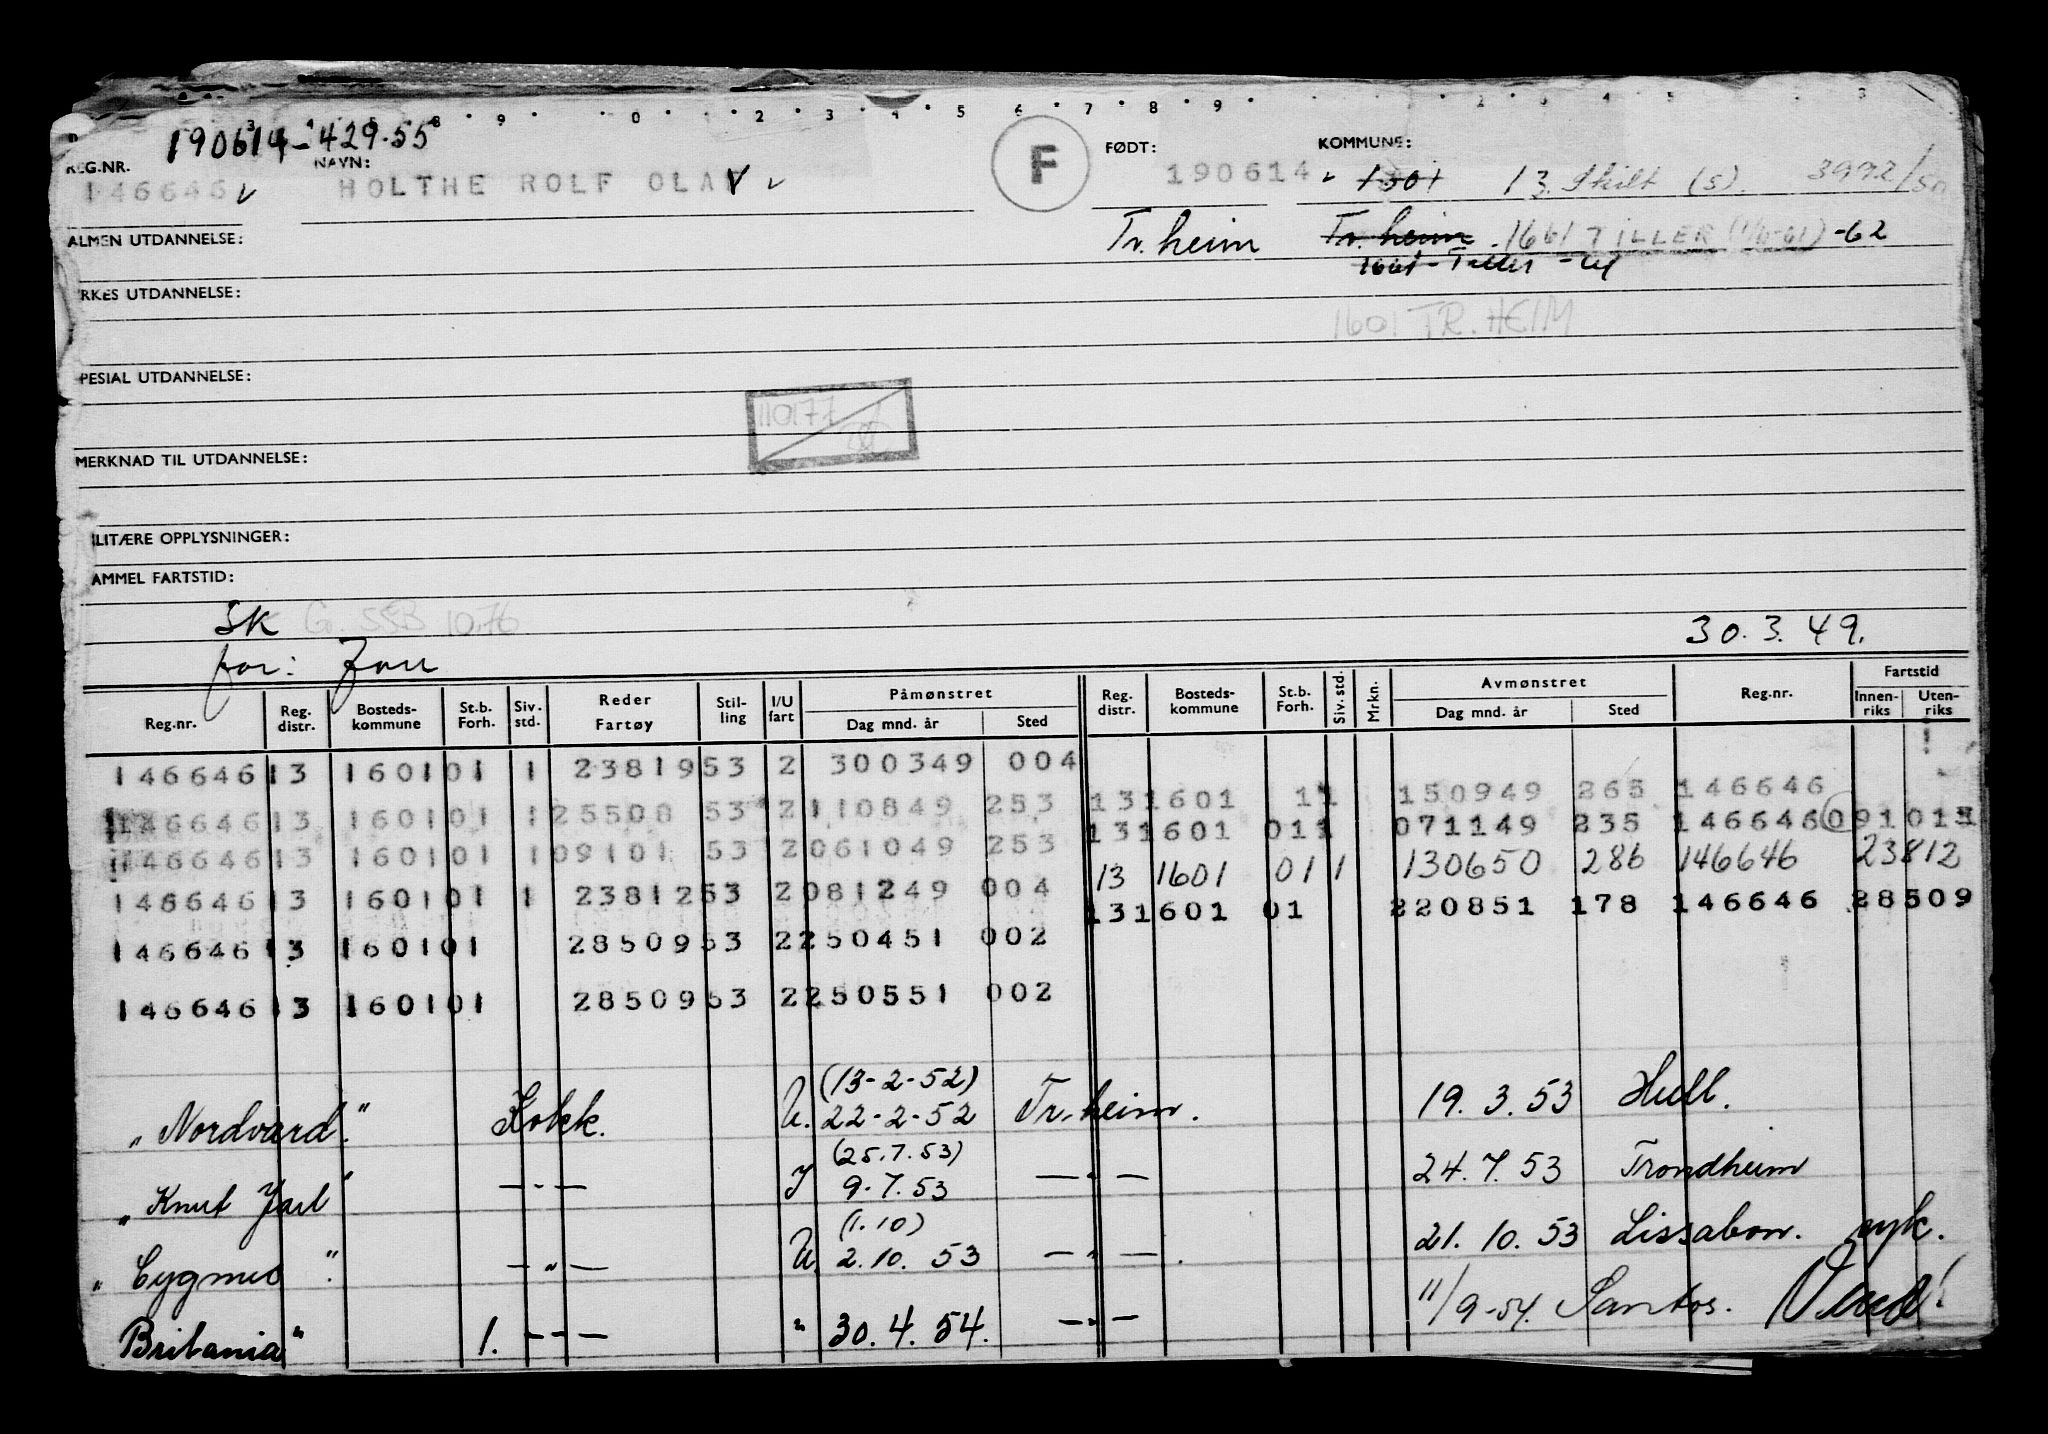 190614-429.55
REG.NR. NAVN: F FØDT: KOMMUNE:
146646 HOLTHE ROLF OLAV 190614 1301 13. Skilt (S). 3992/50
ALMEN UTDANNELSE: Tr.heim Tr.heim 1661 TILLER -62
1661 - Tiller
RKES UTDANNELSE:
1601 TR. HEIM
PESIAL UTDANNELSE:
110177
MERKNAD TIL UTDANNELSE:
ILITÆRE OPPLYSNINGER:
AMMEL FARTSTID:
SK G. SSB 10.76 30.3.49.
for:
Reg.nr. Reg. distr. Bosteds-kommune St.b. Forh. Siv. std. Reder Fartøy Stil-ling I/U fart Påmønstret Dag mnd. år Sted Reg. distr. Bosteds-kommune St.b. Forh. Siv. std. Mrkn. Avmønstret Dag mnd. år Sted Reg.nr. Fartstid Innen-riks Uten-riks
146646 13 1601 01 1 23819 53 2 300349 004
131601 11 150949 265 146646
146646 13 1601 01 1 25508 53 2 110849 253
131601 011 071149 235 146646 091013
146646 13 1601 01 1 09101 53 2 061049 253
13 1601 01 1 130650 286 146646 23812
146646 13 1601 01 1 23812 53 2 081249 004
131601 01 220851 178 146646 28509
146646 13 1601 01 28509 53 2 250451 002
146646 13 1601 01 28509 53 2 250551 002
(13-2-52)
"Nordvard." Kokk. U. 22-2-52 Tr.heim. 19.3.53 Hull.
(25.7.53)
"Knut Jarl" — " — I 9.7.53 — " — 24.7.53 Trondheim
(1.10)
"Cygnus". — " — U. 2.10.53 — " —. 21.10.53 Lissabon. syk.
Britania" 1. — " — " 30.4.54. — " — 11/9-54. Santos. Vend!